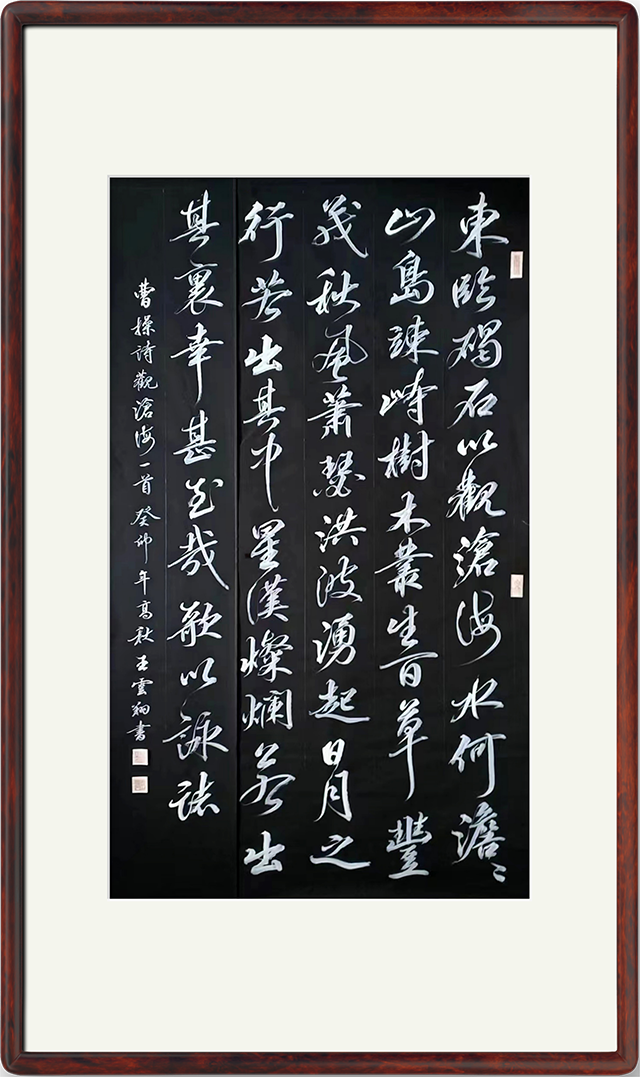 東臨碣石以觀滄海水何澹〻
山島竦峙樹木叢生百草豐
茂秋風蕭瑟洪波湧起日月之
行若出其中星漢燦爛若出
其裏幸甚至哉歌以詠誌
曹操詩觀滄海一首癸卯年高秋王雲翔書